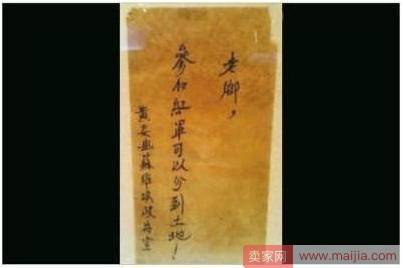 老鄉，
參加紅軍可以分到土地！
黄安县蘇維埃政府宣
卖家网
www.maijia.com